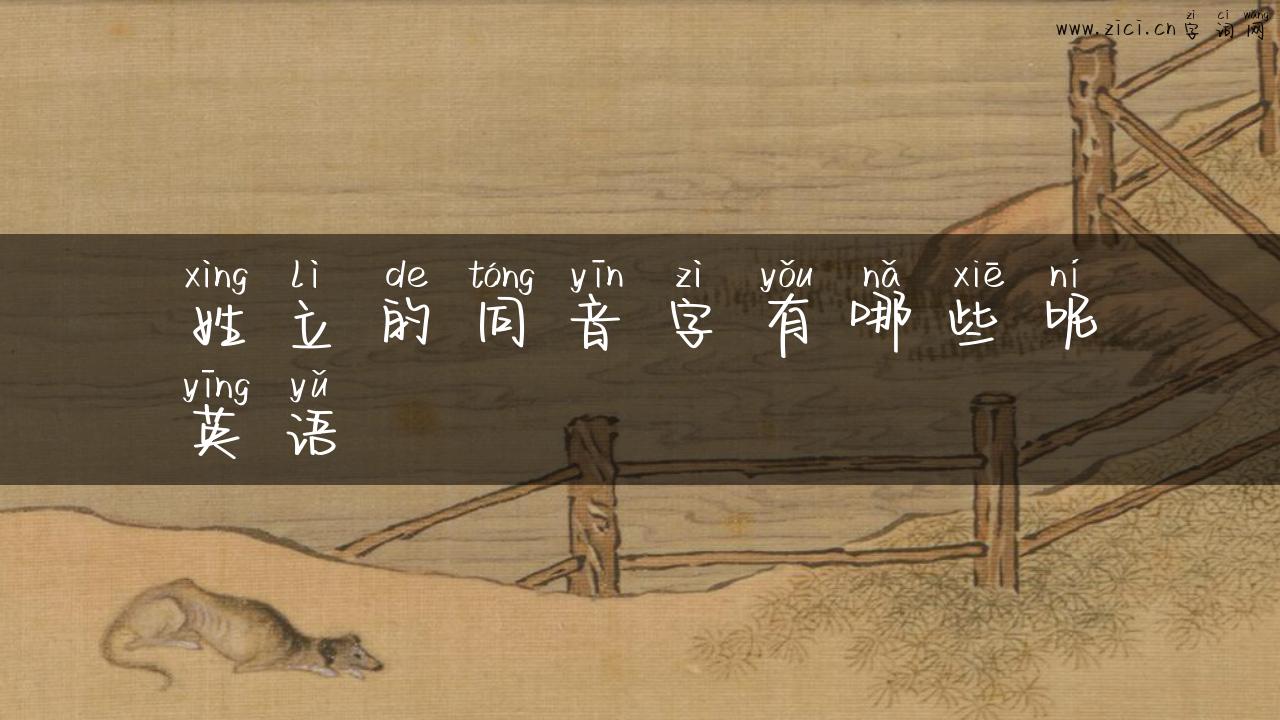 zì cí wǎng
www.zici.cn 字词网
xìng lì de tóng yīn zì yǒu nǎ xiē ní
姓立的同音字有哪些呢
yīng yǔ
英语